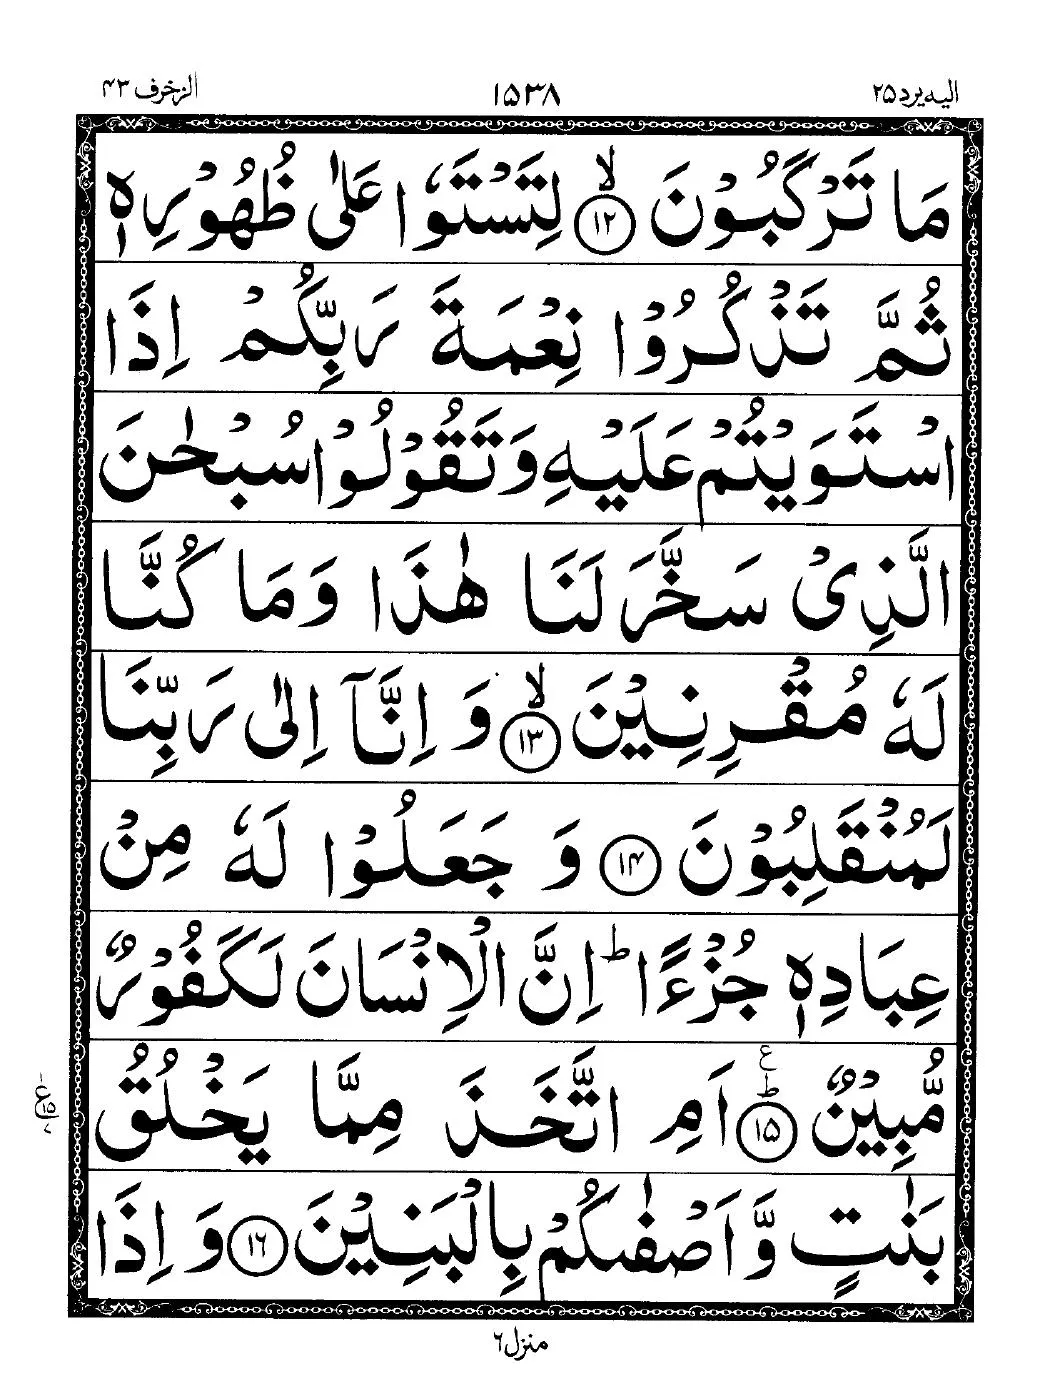 الیه یرد ۲۵ ۱۵۳۸ الزخرف ۴۳
مَا تَرْكَبُوْنَ ﴿۱۲﴾ۙ لِتَسْتَوٗا عَلٰی ظُهُوْرِهٖ
ثُمَّ تَذْكُرُوْا نِعْمَةَ رَبِّكُمْ اِذَا
اسْتَوَیْتُمْ عَلَیْهِ وَتَقُوْلُوْا سُبْحٰنَ
الَّذِیْ سَخَّرَ لَنَا هٰذَا وَمَا كُنَّا
لَهٗ مُقْرِنِیْنَ ﴿۱۳﴾ۙ وَ اِنَّاۤ اِلٰی رَبِّنَا
لَمُنْقَلِبُوْنَ ﴿۱۴﴾ وَ جَعَلُوْا لَهٗ مِنْ
عِبَادِهٖ جُزْءًا ؕ اِنَّ الْاِنْسَانَ لَكَفُوْرٌ
مُّبِیْنٌ ﴿۱۵﴾ؕ ع اَمِ اتَّخَذَ مِمَّا یَخْلُقُ
بَنٰتٍ وَّ اَصْفٰىكُمْ بِالْبَنِیْنَ ﴿۱۶﴾ وَ اِذَا
منزل ۶